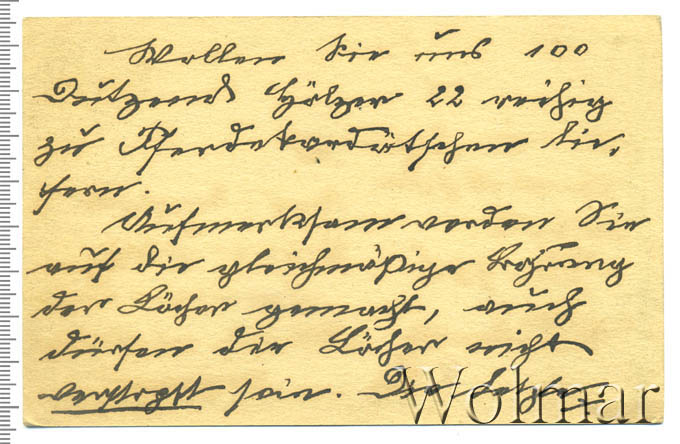 Wollen Sie uns 100
Dutzend Hölzer 22 reihig
zu Pferdekardätschen lie-
fern.
Aufmerksam werden Sie
auf die gleichmäßige Bohrung
der Löcher gemacht, auch
dürfen die Löcher nicht
verstopft sein. Die
Wolmar